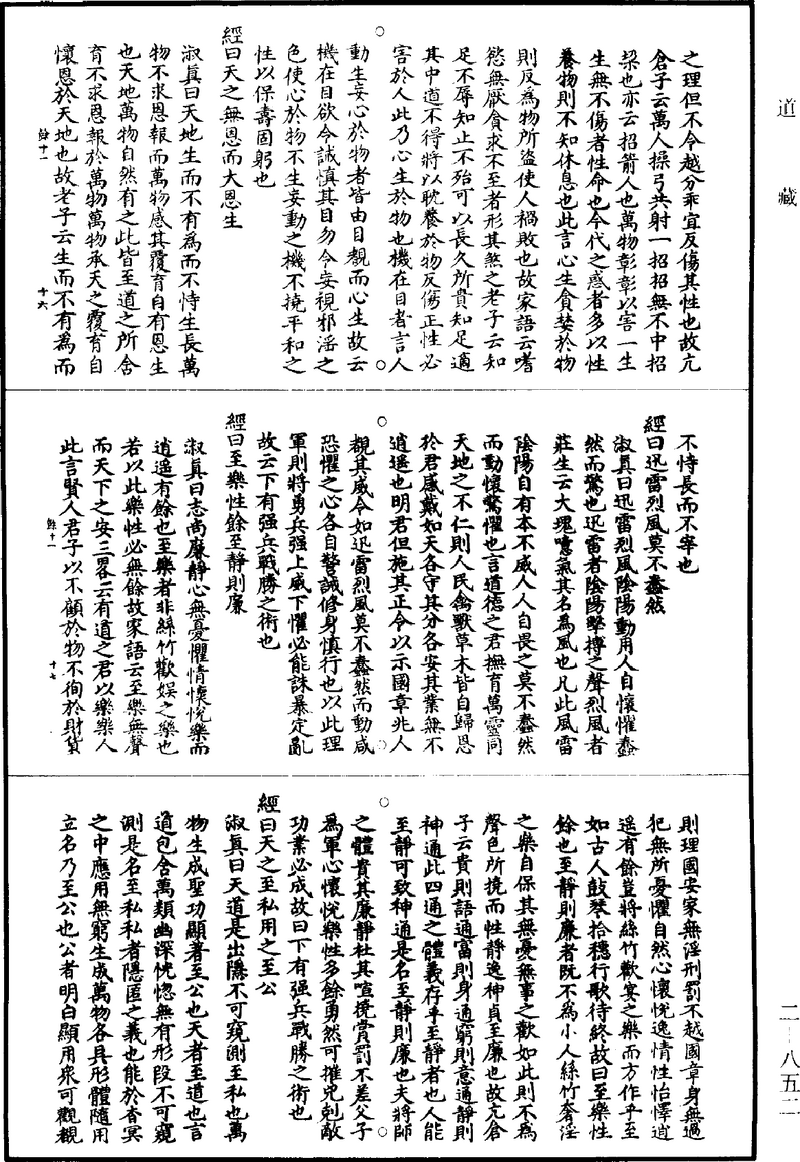 道藏
之理但不令越分乖宜反傷其性也故亢
倉子云萬人操弓共射一招招無不中招
梊也亦云招箭人也萬物彰彰以害一生
生無不傷者性命也今代之惑者多以性
養物則不知休息也此言心生貪婪於物
則反為物所盜使人禍敗也故家語云嗜
慾無厭貪求不至者形其煞之老子云知
足不辱知止不殆可以長久所貴知足適
其中道不得將以耽養於物反傷正性必
害於人此乃心生於物也機在目者言人
動生妄心於物者皆由目覩而心生故云
機在目欲令誡慎其目勿令妄視邪淫之
色使心於物不生妄動之機不撓平和之
性以保壽固躬也
經曰天之無恩而大恩生
淑真曰天地生而不有為而不恃生長萬
物不求恩報而萬物感其覆育自有恩生
也天地萬物自然有之此皆至道之所含
育不求恩報於萬物萬物承天之覆育自
懷恩於天地也故老子云生而不有為而
餘十一 十六
不恃長而不宰也
經曰迅雷烈風莫不蠢然
淑真曰迅雷烈風陰陽動用人自懷懼蠢
然而驚也迅雷者陰陽擊搏之聲烈風者
莊生云大塊噫氣其名為風也凡此風雷
陰陽自有本不威人人自畏之莫不蠢然
而動懷驚懼也言道德之君撫育萬靈同
天地之不仁則人民禽獸草木皆自歸恩
於君感戴如天各守其分各安其業無不
逍遥也明君但施其正令以示國章兆人
覩其威令如迅雷烈風莫不蠢然而動咸
恐懼之心各自警誡修身慎行也以此理
軍則將勇兵强上威下懼必能誅暴定亂
故云下有强兵戰勝之術也
經曰至樂性餘至靜則廉
淑真曰志尚廉靜心無憂懼情懷悅樂而
逍遥有餘也至樂者非絲竹歡娛之樂也
若以此樂性必無餘故家語云至樂無聲
而天下之安三畧云有道之君以樂樂人
此言賢人君子以不顧於物不徇於財貨
餘十一 十七
則理國安家無淫刑罰不越國章身無過
犯無所憂懼自然心懷悅逸情性怡懌逍
遥有餘豈將絲竹歡宴之樂而方作乎至
如古人鼓琴拾穗行歌待終故曰至樂性
餘也至靜則廉者既不為小人絲竹奢淫
之樂自保其無憂無事之歡如此則不為
聲色所撓而性靜逸神貞至廉也故亢倉
子云貴則語通富則身通窮則意通靜則
神通此四通之體義存乎至靜者也人能
至靜可致神通是名至靜則廉也夫將帥
之體貴其廉靜杜其喧撓賞罰不差父子
為軍心懷悅樂性多餘勇然可摧兇剋敵
功業必成故曰下有强兵戰勝之術也
經曰天之至私用之至公
淑真曰天道是出隱不可窺測至私也萬
物生成聖功顯著至公也天者至道也言
道包含萬類幽深恍惚無有形段不可窺
測是名至私私者隱匿之義也能於杳冥
之中應用無窮生成萬物各具形體隨用
立名乃至公也公者明白顯用眾可觀覩
二－八五二